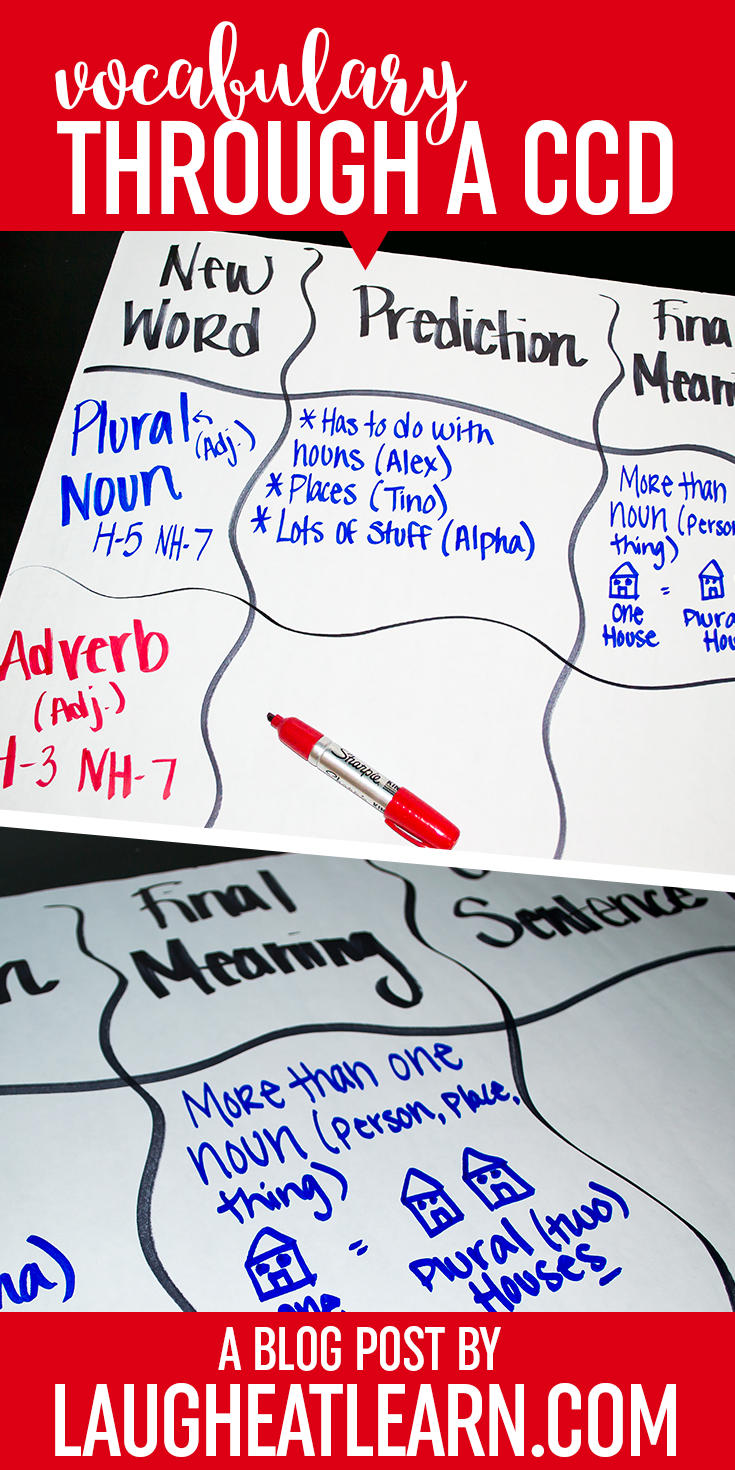 vocabulary
THROUGH A CCD
New
Word
Prediction
Final
Plural
(Adj.)
Noun
H-5 NH-7
*Has to do with
nouns (Alex)
*Places (Tino)
*Lots of Stuff (Alpha)
More than
noun (person
thing)
=
One
House
Adverb
(Adj.)
H-3 NH-7
Sharpie
Final
Meaning
Sentence
More than one
noun (person, place,
thing)
=
Plural (two)
Houses
One
A BLOG POST BY
LAUGHEATLEARN.COM